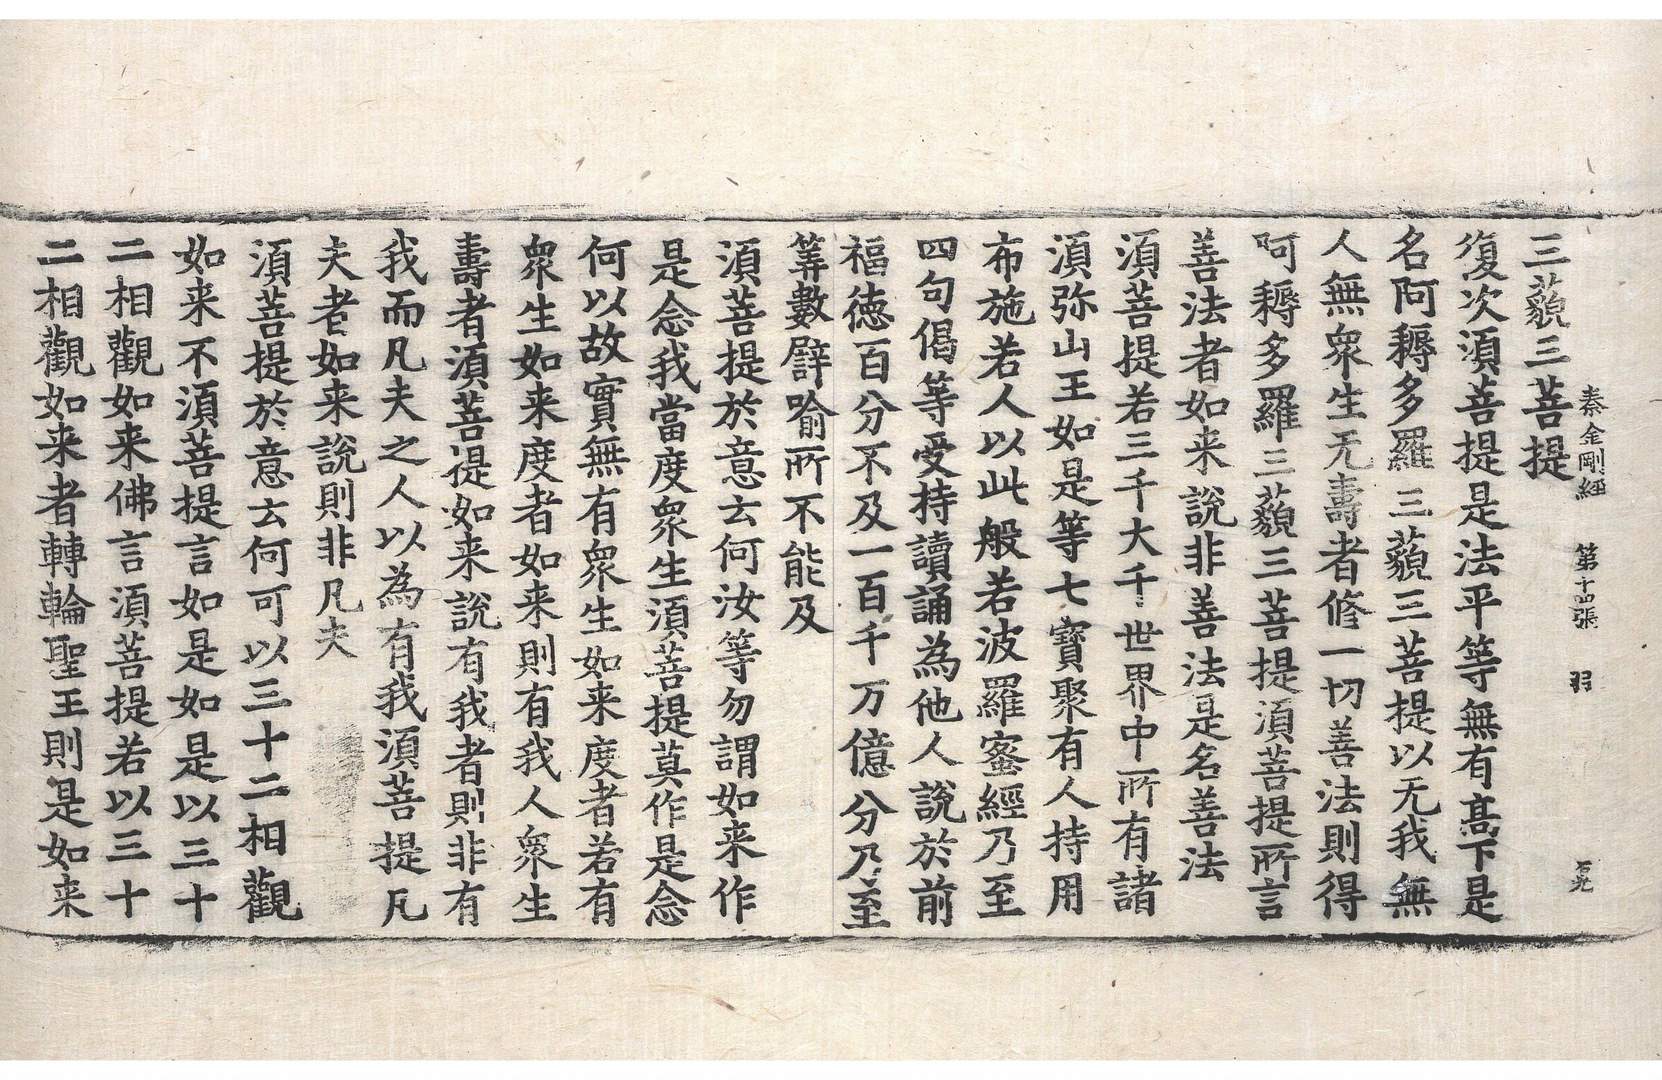 秦金剛經　第十四張　羽　石光
三藐三菩提
復次須菩提是法平等無有髙下是
名阿耨多羅三藐三菩提以无我無
人無衆生无壽者修一切善法則得
阿耨多羅三藐三菩提須菩提所言
善法者如来說非善法是名善法
須菩提若三千大千世界中所有諸
須弥山王如是等七寶聚有人持用
布施若人以此般若波羅蜜經乃至
四句偈等受持讀誦為他人說於前
福德百分不及一百千万億分乃至
筭數譬喻所不能及
須菩提於意云何汝等勿謂如来作
是念我當度衆生須菩提莫作是念
何以故實無有衆生如来度者若有
衆生如来度者如来則有我人衆生
壽者須菩提如来說有我者則非有
我而凡夫之人以為有我須菩提凡
夫者如来說則非凡夫
須菩提於意云何可以三十二相觀
如来不須菩提言如是如是以三十
二相觀如来佛言須菩提若以三十
二相觀如来者轉輪聖王則是如来